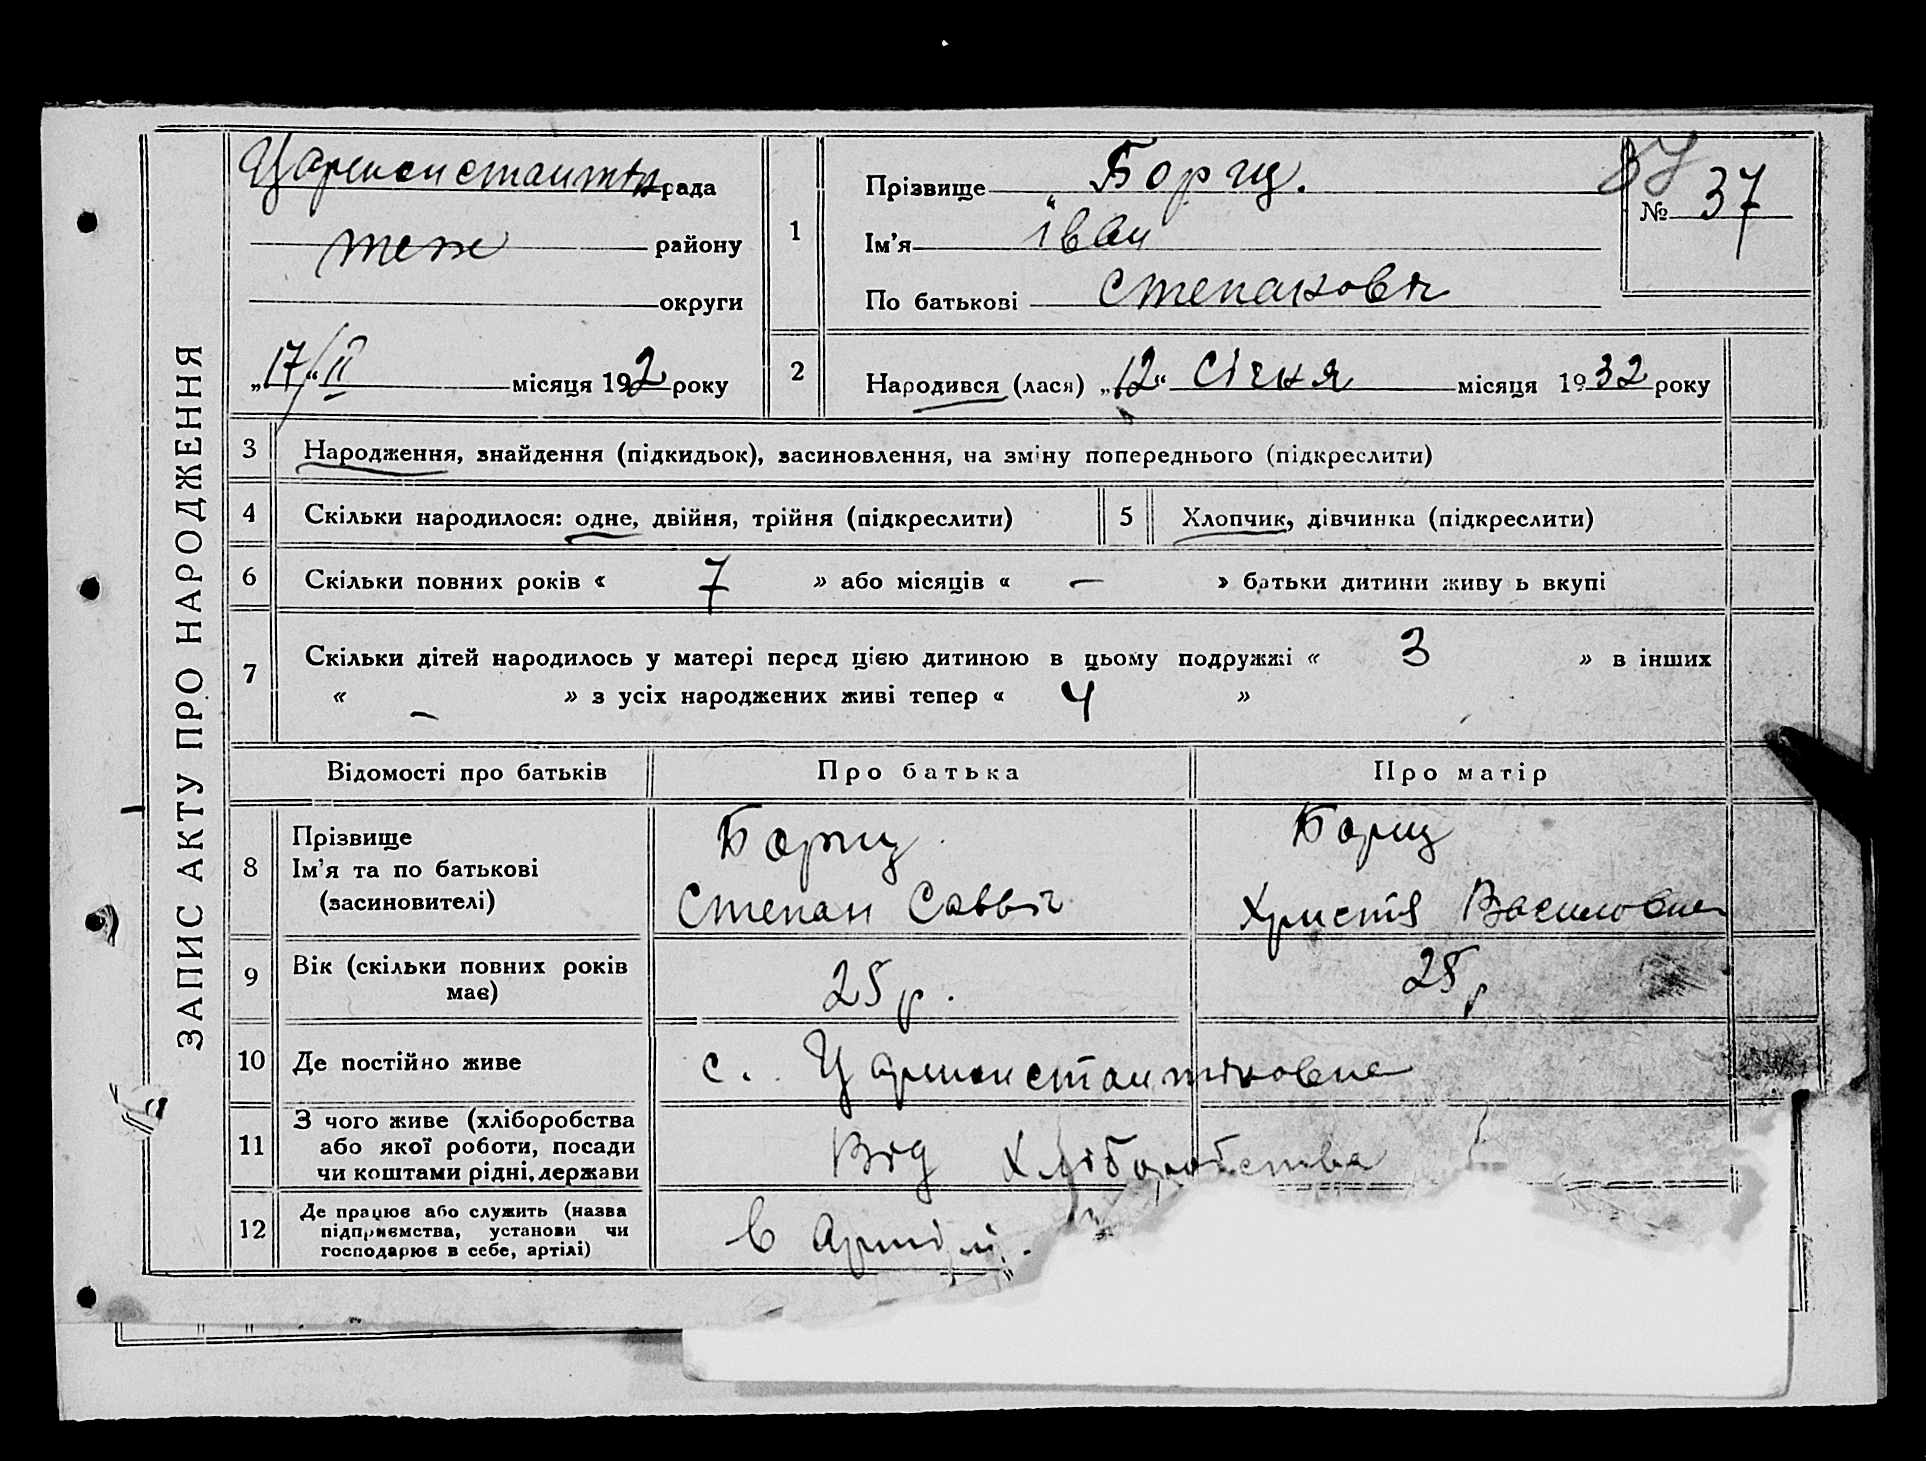 ЗАПИС АКТУ ПРО НАРОДЖЕННЯ
Царекон стантін рада
теж району
округи
„17/“ II місяця 1932 року
1
Прізвище Борщ.
Ім’я Іван
По батькові Степанович
№ 37
2
Народився (лася) „12“ січня місяця 1932 року
3 Народження, знайдення (підкидьок), засиновлення, на зміну попереднього (підкреслити)
4 Скільки народилося: одне, двійня, трійня (підкреслити) 5 Хлопчик, дівчинка (підкреслити)
6 Скільки повних років « 7 » або місяців « — » батьки дитини живу ь вкупі
7 Скільки дітей народилось у матері перед цією дитиною в цьому подружжі « 3 » в інших
« — » з усіх народжених живі тепер « 4 »
Відомості про батьків Про батька Про матір
8 Прізвище Борщ Борщ
Ім’я та по батькові
(засиновителі) Степан Саввич Христя Василовна
9 Вік (скільки повних років має) 25 р. 25 р
10 Де постійно живе с. Царекон стантіновне
11 З чого живе (хліборобства
або якої роботи, посади
чи коштами рідні, держави Від хліборобства
12 Де працює або служить (назва
підприємства, установи чи
господарює в себе, артілі) в артілі.